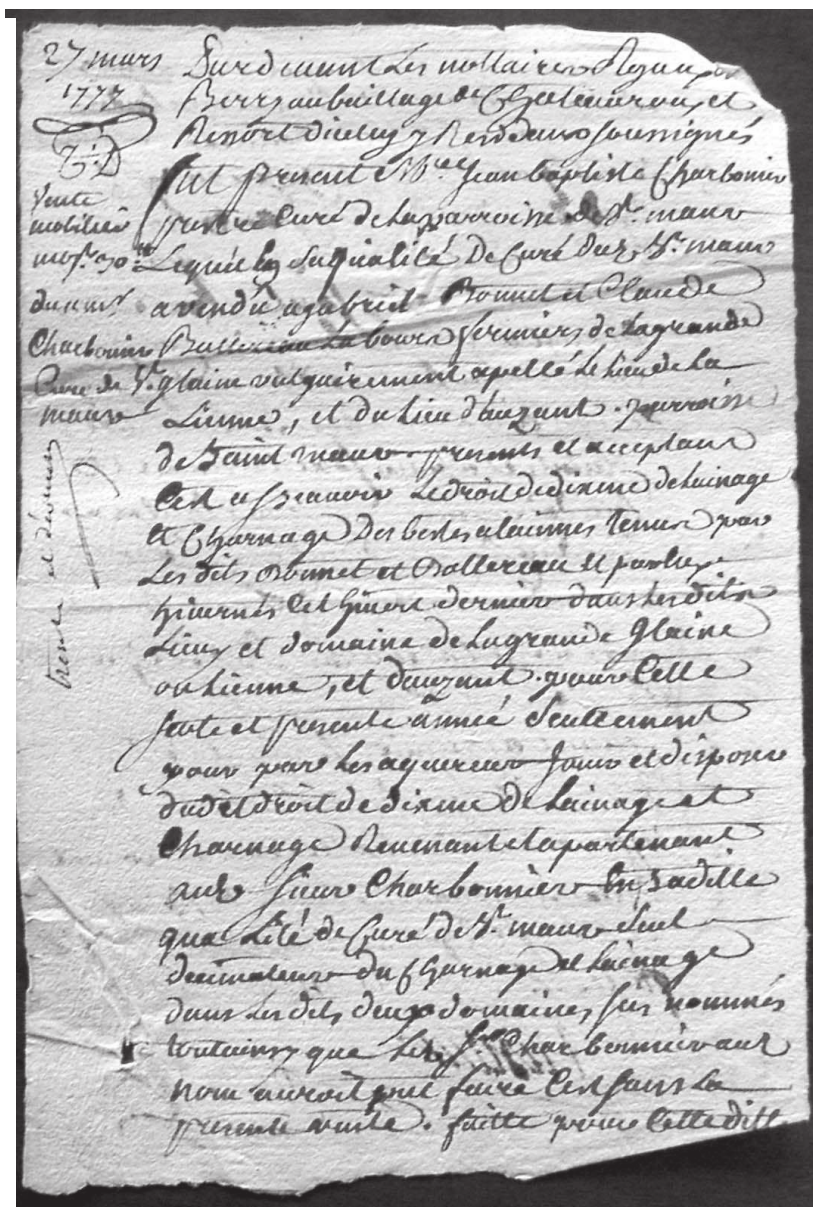 27 mars
1777
Vente
mobilier
du s.r
Charbonnier
Curé de St.
maur
trente et
Pardevant Les nottaires Royaux
Berry au baillage de Chateauroux et
Ressort d'iceluy Residans soussignés
fut present M.re Jean baptiste Charbonier
prestre Curé de la parroisse de St. maur
Lequel en sa qualité De Curé dud. St. maur
a vendu a gabriel Bonnet et Claude
Ballereau laboureurs fermiers de La grande
glaine vulguairement apellé le lieu de La
Lienne, et du lieu d'auzant. parroisse
de Saint maur presents et acceptans
C'est a sçeavoir Le droit de dixme de Lainage
et Charnage Des bestes a laines tenus par
Les dits Bonnet et Ballereau et par eux
hivernés Cet hivert dernier dans Les dits
Lieux et domaine de La grande Glaine
ou Lienne, et d'auzant. pour Cette
seule et presente année Seullement
pour par Les aquereurs Jouir et disposer
dudit droit de dixme de Lainage et
Charnage Revenant et apartenant
aud. sieur Charbonnier En sa ditte
qualité de Curé de St. maur Seul
decimateur du Charnage et Lainage
dans Les dits deux domaines sus nommés
tout ainsy que Led. Sieur Charbonnier aud.
nom auroit put faire C'est sans La
presente vente. faitte pour Cette ditte